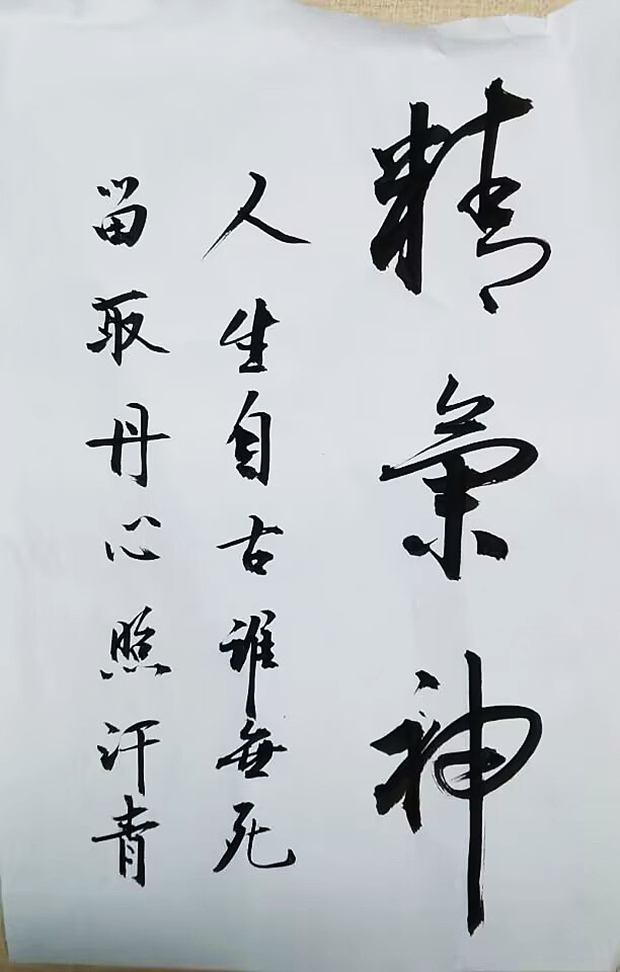 精氣神
人生自古誰無死
留取丹心照汗青